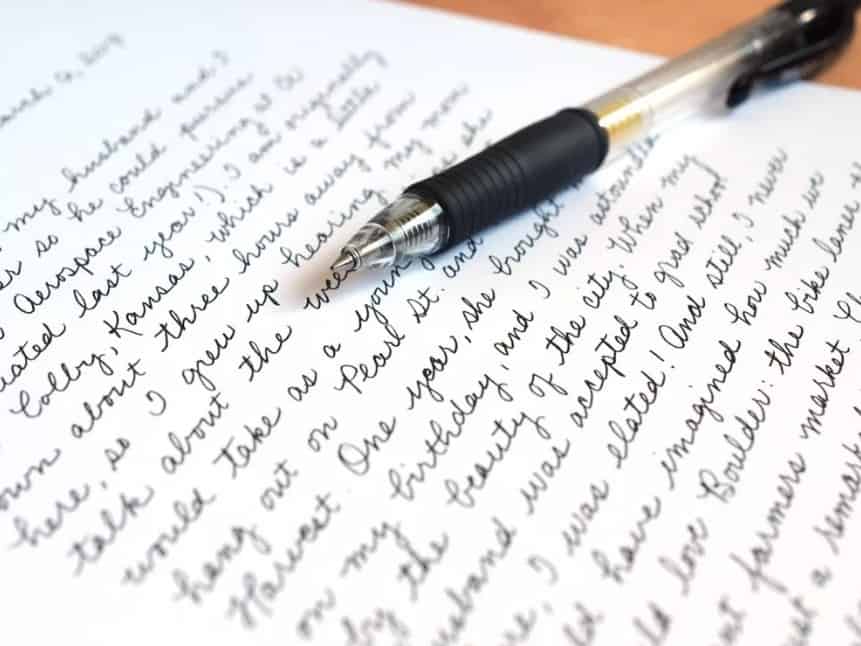 my husband and I
er so he could pursue
Aerospace Engineering at
uated last year!). I am originally
Colby, Kansas, which is a little
own about three hours away from
here, so I grew up hearing my mom
talk about the wee she
would take as a young
hang out on Pearl St. and
Harvest. One year, she brought
on my birthday, and I was astounde
by the beauty of the city. When my
usband was accepted to grad school
re, I was elated! And still, I never
ld have imagined how much we
ld love Boulder: the bike lanes,
nt farmers market
st a remark